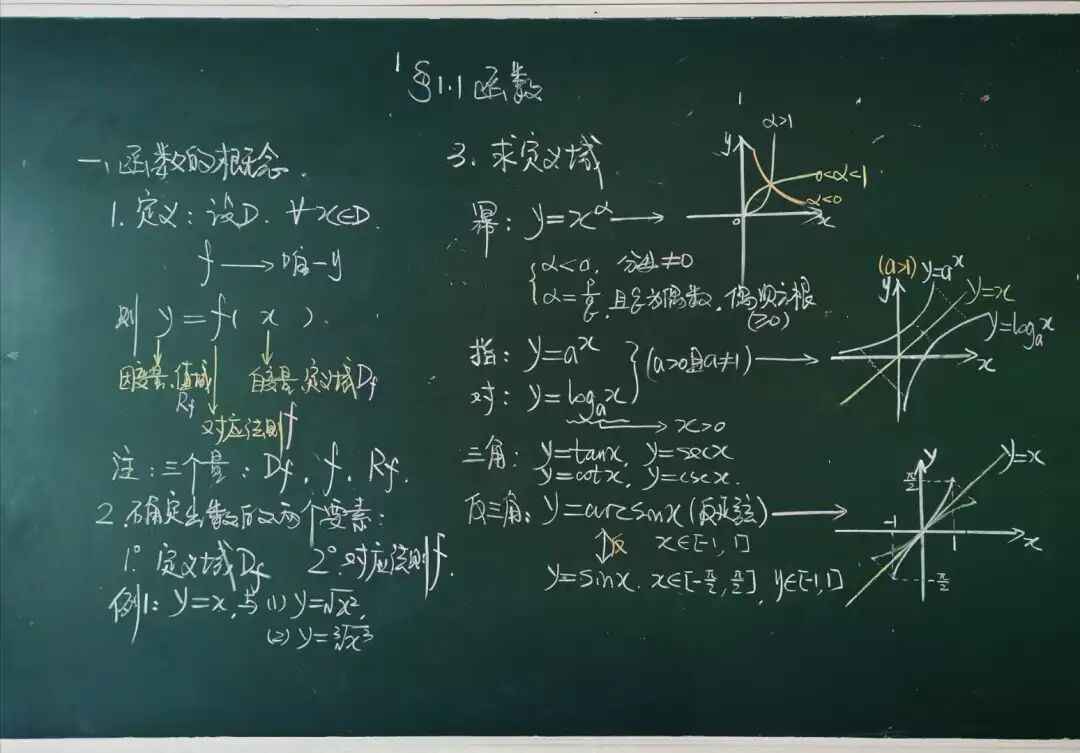 §1.1 函数
一、函数的概念.
1. 定义: 设D. ∀x∈D.
f ⟶ 唯一y
则 y = f( x ).
因变量, 值域 Rf
自变量, 定义域Df
对应法则f
注: 三个量: Df, f, Rf.
2. 确定函数的两个要素:
1° 定义域Df 2° 对应法则f.
例1: y=x, 与 (1) y=√x²,
(2) y=³√x³
3. 求定义域
幂: y=x^α ⟶
α<0, 分母≠0
α=p/q, 且q为偶数, 偶次方根
(≥0)
指: y=a^x
对: y=log_a x
(a>0且a≠1) ⟶
⟶ x>0
三角: y=tanx, y=secx
y=cotx, y=cscx.
反三角: y=arcsinx (反正弦) ⟶
↕反 x∈[-1, 1]
y=sinx. x∈[-π/2, π/2], y∈[-1, 1]
α>1
y
0<α<1
α<0
0
x
(a>1)
y=a^x
y
y=x
y=log_a x
x
y
y=x
π/2
-1
1
x
-π/2